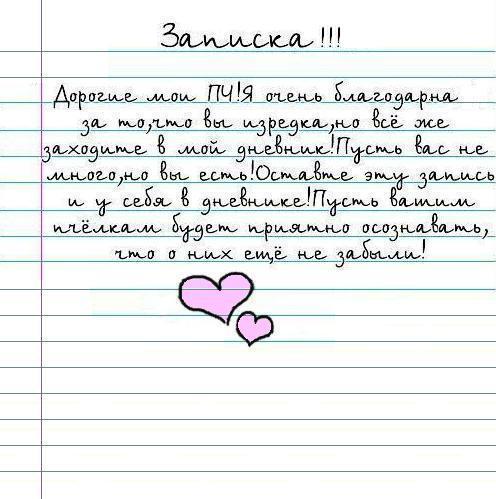 Записка!!!
Дорогие мои ПЧ!Я очень благодарна
за то,что вы изредка,но всё же
заходите в мой дневник!Пусть вас не
много,но вы есть!Оставте эту запись
и у себя в дневнике!Пусть вашим
пчёлкам будет приятно осознавать,
что о них ещё не забыли!